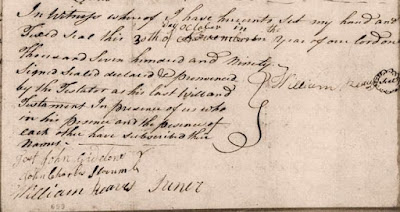 In Witness whereof I have hereunto Set my hand and
Seal this 30th of October in the Year of our Lord one
Thous and Seven hundred and Ninety
Signd Seald declared & pronounced
by the Testator as his Last Will and
Testament In presence of us who
in his presence and the presence of
each other have Subscribed their
Names
William Heaves Seal
John
John Charles
William Heaves Juner